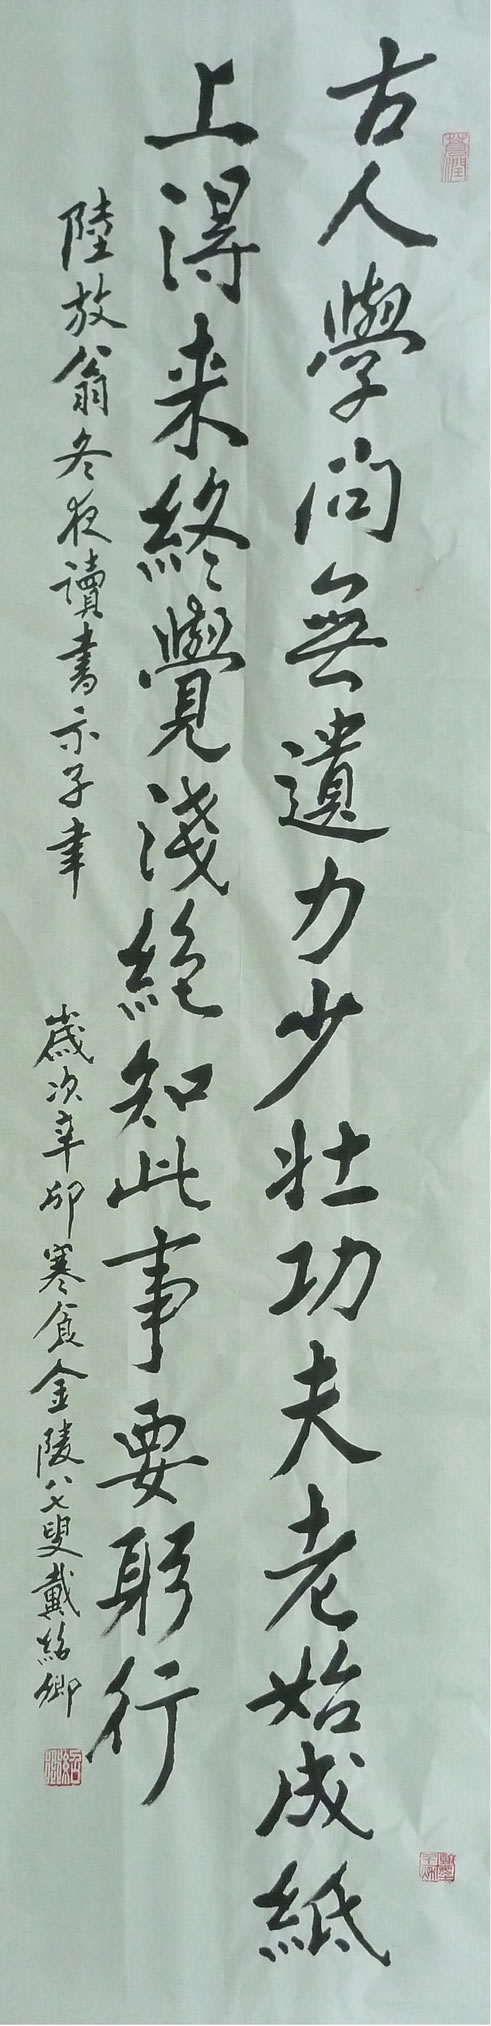 古人學问無遺力少壮功夫老始成紙
上得来終覺淺絕知此事要躬行
陸放翁冬夜讀書示子聿
歲次辛卯寒食金陵八七叟戴紹卿